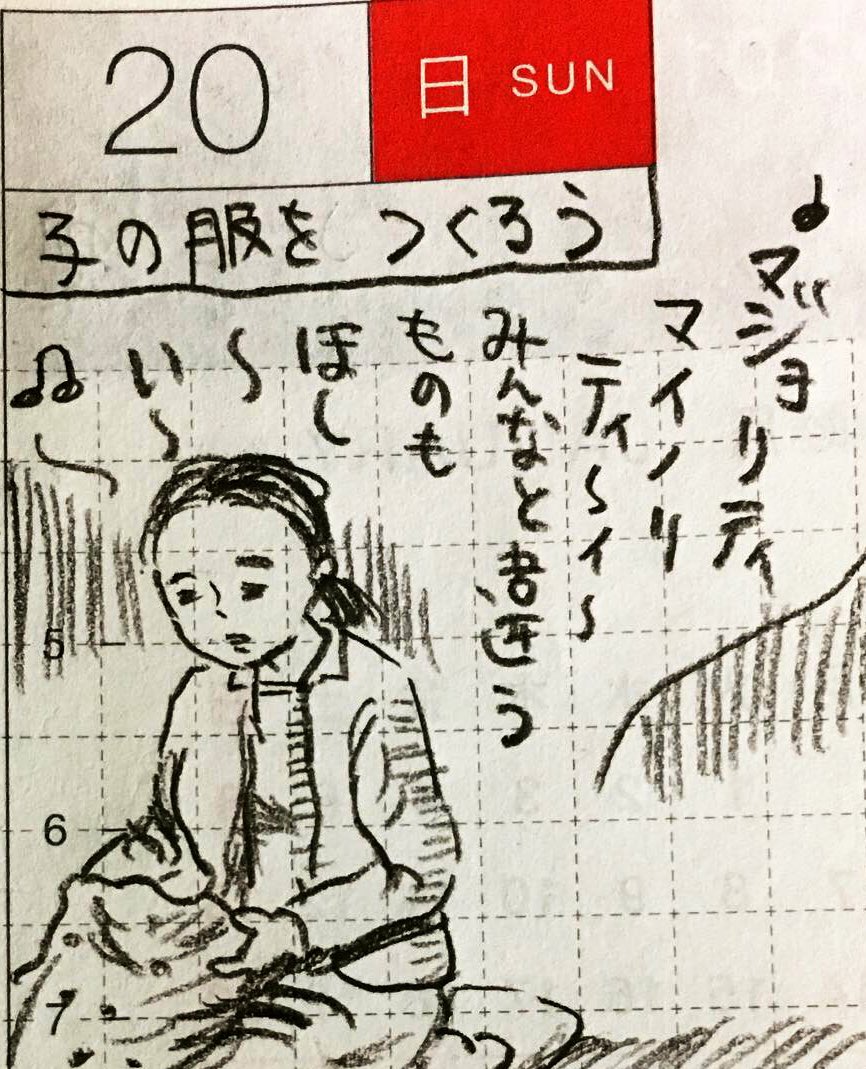 20
日 SUN
子の服を つくろう
♪
マジョリティ
マイノリ
ティ〜イ〜
みんなと違う
ものも
ほし
〜
い〜
♫
5
6
7